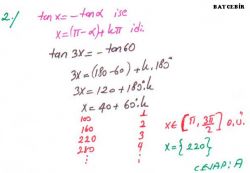 BAYCEBİR
2-/ tanx = -tanα ise
x = (π-α) + kπ idi
tan 3x = -tan60
3x = (180-60) + k.180°
3x = 120 + 180°.k
x = 40 + 60°.k
100 1
160 2
220 3
280 4
⋮ ⋮
x ∈ [π, 3π/2] 
x = {220}
CEVAP: A